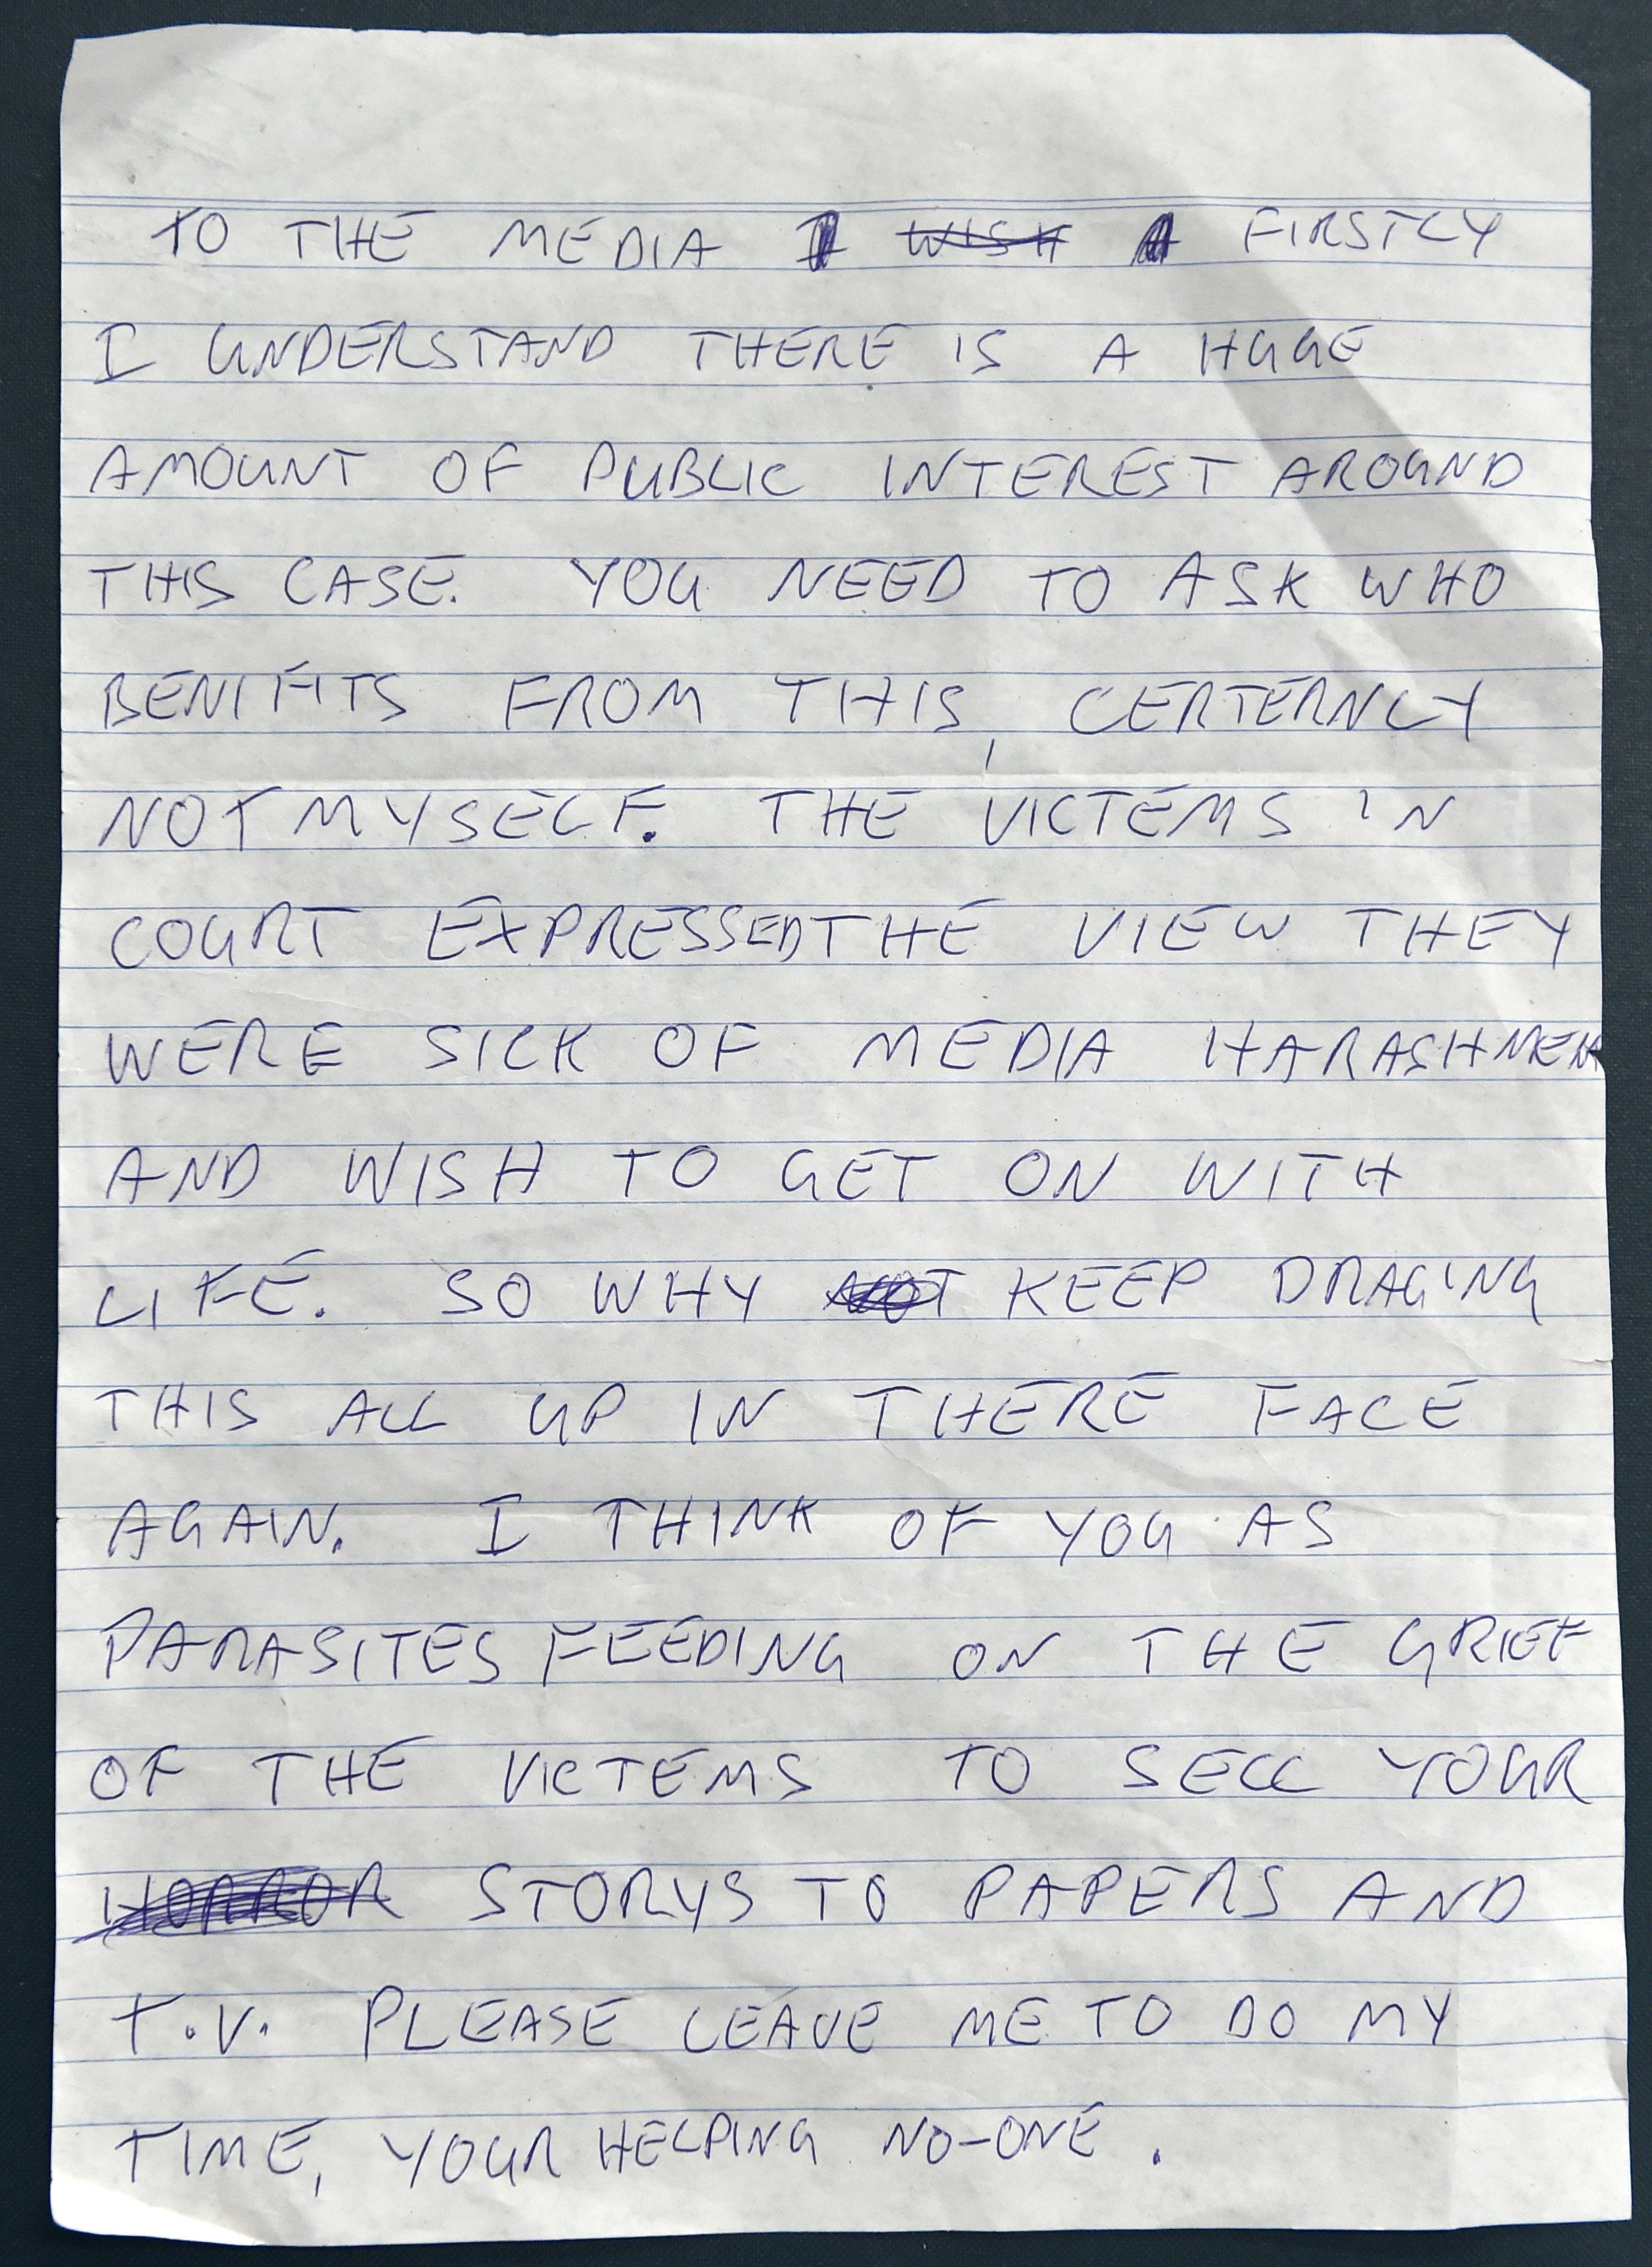 TO THE MEDIA I WISH A FIRSTLY
I UNDERSTAND THERE IS A HUGE
AMOUNT OF PUBLIC INTEREST AROUND
THIS CASE. YOU NEED TO ASK WHO
BENIFITS FROM THIS, CERTERNLY
NOT MYSELF. THE VICTEMS IN
COURT EXPRESSED THE VIEW THEY
WERE SICK OF MEDIA HARASHMEN
AND WISH TO GET ON WITH
LIFE. SO WHY NOT KEEP DRAGING
THIS ALL UP IN THERE FACE
AGAIN. I THINK OF YOU AS
PARASITES FEEDING ON THE GRIEF
OF THE VICTEMS TO SELL YOUR
HORROR STORYS TO PAPERS AND
T.V. PLEASE LEAVE ME TO DO MY
TIME, YOUR HELPING NO-ONE.